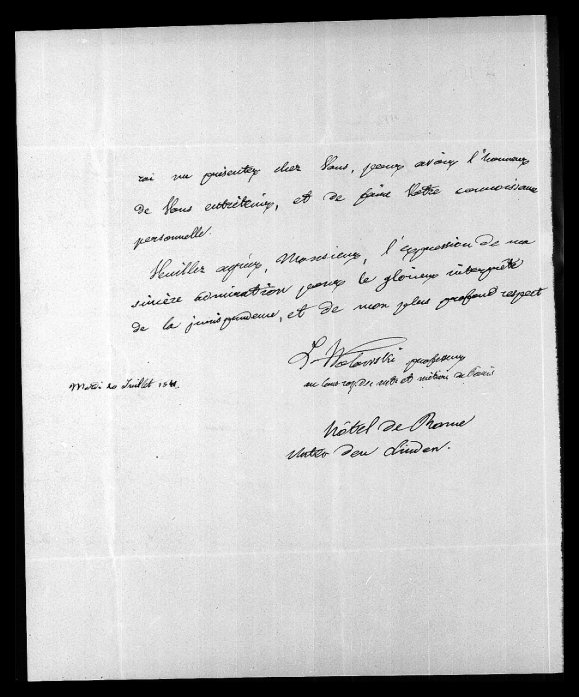 rai me présenter chez Vous, pour avoir l'honneur
de Vous entretenir, et de faire Votre connoissance
personnelle.
Veuillez agréer, Monsieur, l'expression de ma
sincère admiration pour le glorieux interprète
de la jurisprudence, et de mon plus profond respect
L Wolowski professeur
au Cons roy. des arts et métiers de Paris
Mardi 20 Juillet
Hôtel de Rome
Unter den Linden.